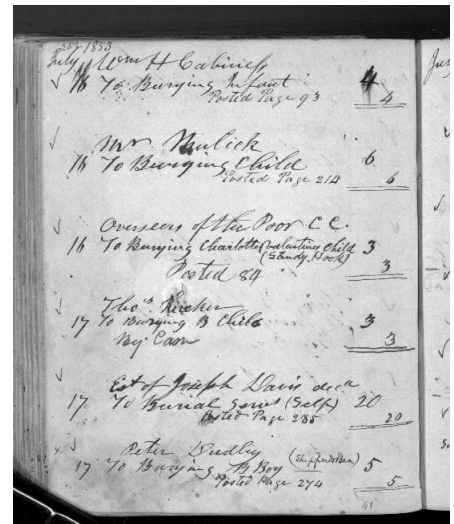 July 1853
Wm H Cabiness
16 To Burying Infant 4
Posted Page 93 4
Mr Mulick
16 To Burying Child 6
Posted Page 214 6
Overseers of the Poor C.C.
16 To Burying Charlotte Valentines Child 3
(Sandy Hook)
Posted 84 3
Thos Tucker
17 To Burying B Child 3
By Cash 3
Est of Joseph Davis decd
17 To Burial Servt (Self) 20
Posted Page 285 20
Peter Dudley
17 To Burying B Boy 5
Posted Page 274 5